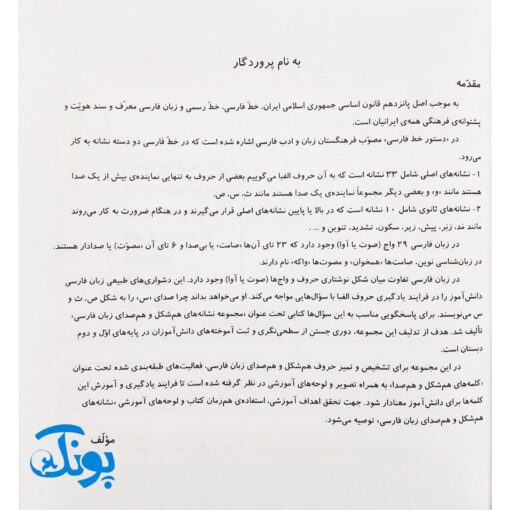 به نام پروردگار
مقدّمه
به موجب اصل پانزدهم قانون اساسی جمهوری اسلامی ایران، خطّ فارسی، خطّ رسمی و زبان فارسی معرّف و سند هویّت و
پشتوانه‌ی فرهنگی همه‌ی ایرانیان است.
در «دستور خط فارسی» مصوّب فرهنگستان زبان و ادب فارسی اشاره شده است که در خطّ فارسی دو دسته نشانه به کار
می‌رود.
۱- نشانه‌های اصلی شامل ۳۳ نشانه است که به آن حروف الفبا می‌گوییم بعضی از حروف به تنهایی نماینده‌ی بیش از یک صدا
هستند مانند «و» و بعضی دیگر مجموعاً نماینده‌ی یک صدا هستند مانند ث، س، ص.
۲- نشانه‌های ثانوی شامل ۱۰ نشانه است که در بالا یا پایین نشانه‌های اصلی قرار می‌گیرند و در هنگام ضرورت به کار می‌روند
مانند مَد، زَبَر، پیش، زیر، سکون، تشدید، تنوین و ... .
در زبان فارسی ۲۹ واج (صوت یا آوا) وجود دارد که ۲۳ تای آن‌ها «صامت» یا بی‌صدا و ۶ تای آن «مصوّت» یا صدادار هستند.
در زبان‌شناسی نوین، صامت‌ها «همخوان» و مصوت‌ها «واکه» نام دارند.
در زبان فارسی تفاوت میان شکل نوشتاری حروف و واج‌ها (صوت یا آوا) وجود دارد. این دشواری‌های طبیعی زبان فارسی
دانش‌آموز را در فرایند یادگیری حروف الفبا با سؤال‌هایی مواجه می‌کند. او می‌خواهد بداند چرا صدای «س» را به شکل ص، ث و
س می‌نویسند. برای پاسخگویی مناسب به این سؤال‌ها کتابی تحت عنوان «مجموعه نشانه‌های هم‌شکل و هم‌صدای زبان فارسی»
تألیف شد. هدف از تدلیف این مجموعه، دوری جستن از سطحی‌نگری و ثبت آموخته‌های دانش‌آموزان در پایه‌های اوّل و دوم
دبستان است.
در این مجموعه برای تشخیص و تمیز حروف هم‌شکل و هم‌صدای زبان فارسی، فعالیت‌های طبقه‌بندی شده تحت عنوان
«کلمه‌های هم‌شکل و هم‌صدا» به همراه تصویر و لوحه‌های آموزشی در نظر گرفته شده است تا فرایند یادگیری و آموزش این
کلمه‌ها برای دانش‌آموز معنادار شود. جهت تحقق اهداف آموزشی، استفاده‌ی هم‌زمان کتاب و لوحه‌های آموزشی «نشانه‌های
هم‌شکل و هم‌صدای زبان فارسی» توصیه می‌شود.
مؤلّف
پونک